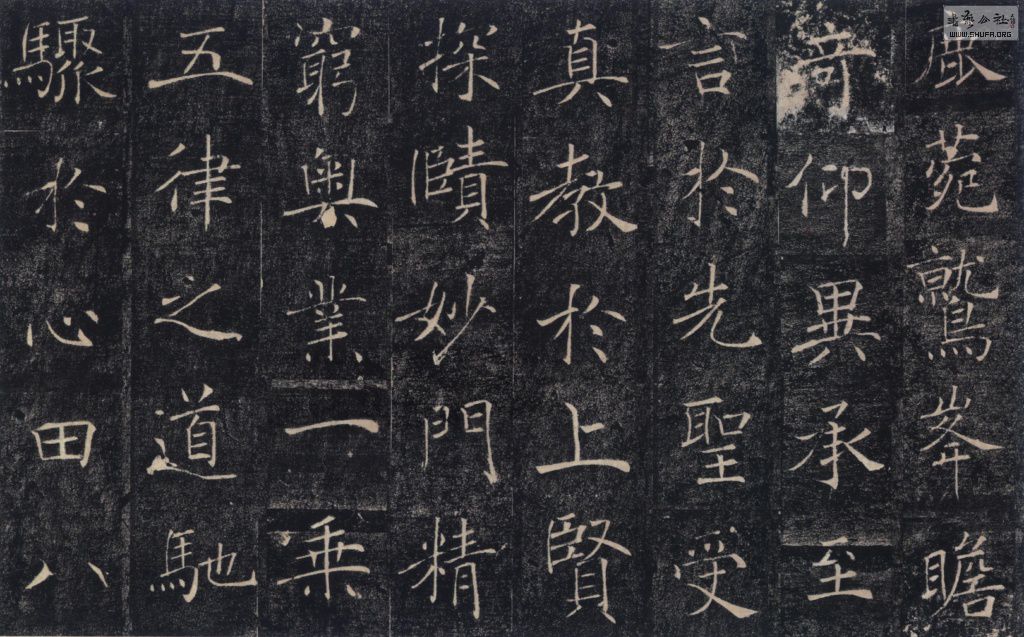 鹿菀鷲峯瞻
奇仰異承至
言於先聖受
真教於上賢
探賾妙門精
窮奧業一乗
五律之道馳
驟於心田八
WWW.SHUFA.ORG